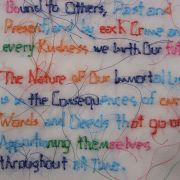 Bound to Others, Past and
Present, and by each Crime and
every Kindness we birth Our
The Nature of Our Immortal
is in the Consequences of our
Words and Deeds that go on
Apportioning themselves
throughout all Time.